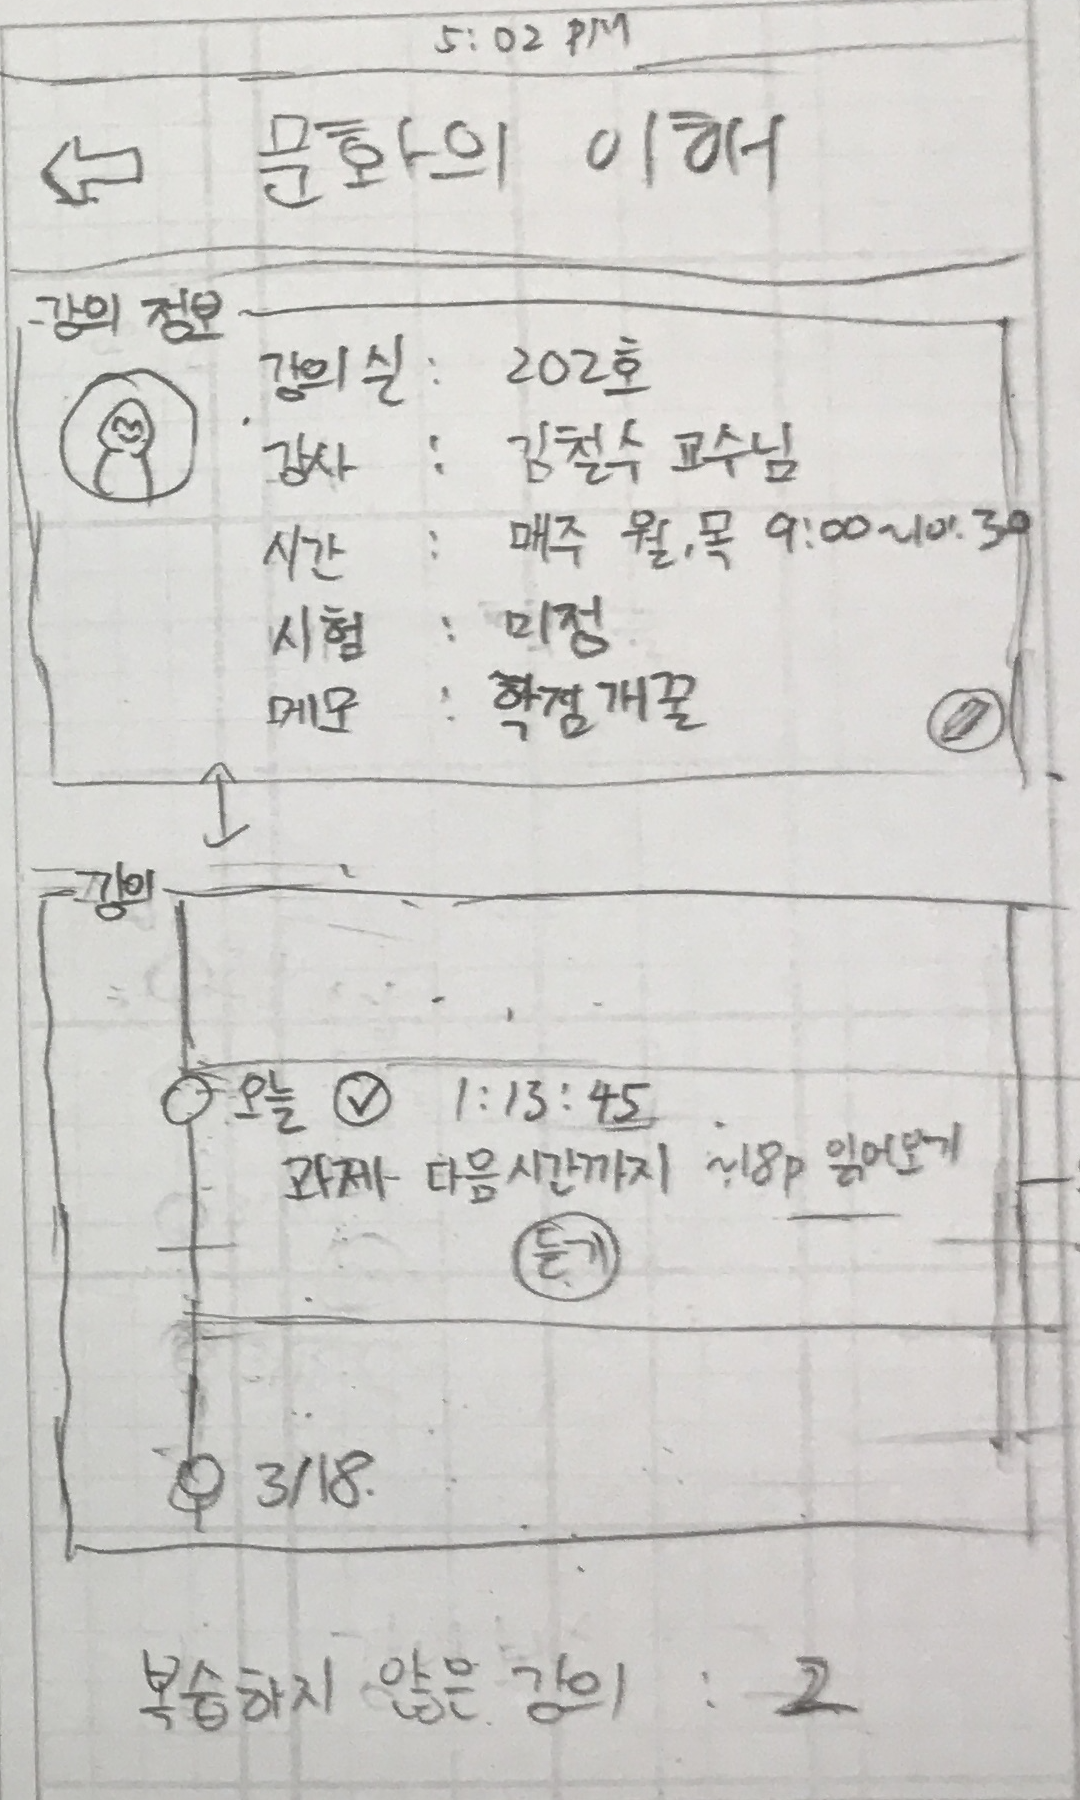 5:02 PM
문화의 이해
강의 정보
강의실 : 202호
강사 : 김철수 교수님
시간 : 매주 월,목 9:00~10:30
시험 : 미정
메모 : 학점개꿀
강의
오늘 1:13:45
과제 다음시간까지 ~18p 읽어보기
듣기
3/18.
복습하지 않은 강의 : 2